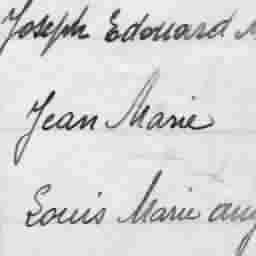 Joseph Edouard
Jean Marie
Louis Marie aug